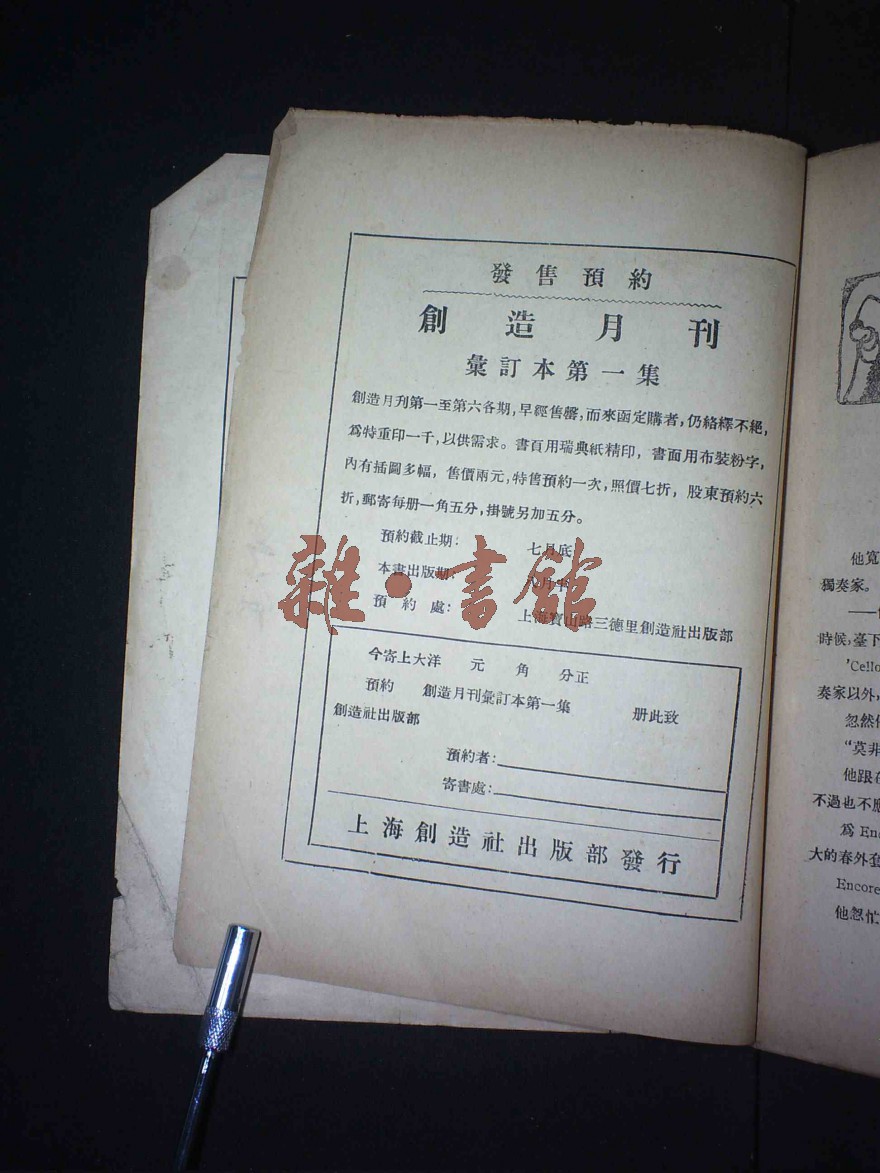 發售預約
創造月刊
彙訂本第一集
創造月刊第一至第六各期，早經售罄，而來函定購者，仍絡繹不絕，
爲特重印一千，以供需求。書頁用瑞典紙精印，書面用布裝粉字，
內有插圖多幅，售價兩元，特售預約一次，照價七折，股東預約六
折，郵寄每册一角五分，掛號另加五分。
預約截止期：七月底
本書出版期：
預約處：上海寶山路三德里創造社出版部
雜·書館
今寄上大洋 元 角 分正
預約 創造月刊彙訂本第一集 册此致
創造社出版部
預約者：
寄書處：
上海創造社出版部發行
獨奏家。
時候，臺下
'Cello
奏家以外，
忽然
“莫非
他跟
不過也不應
爲 Enc
大的春外套
Encore
他怱忙